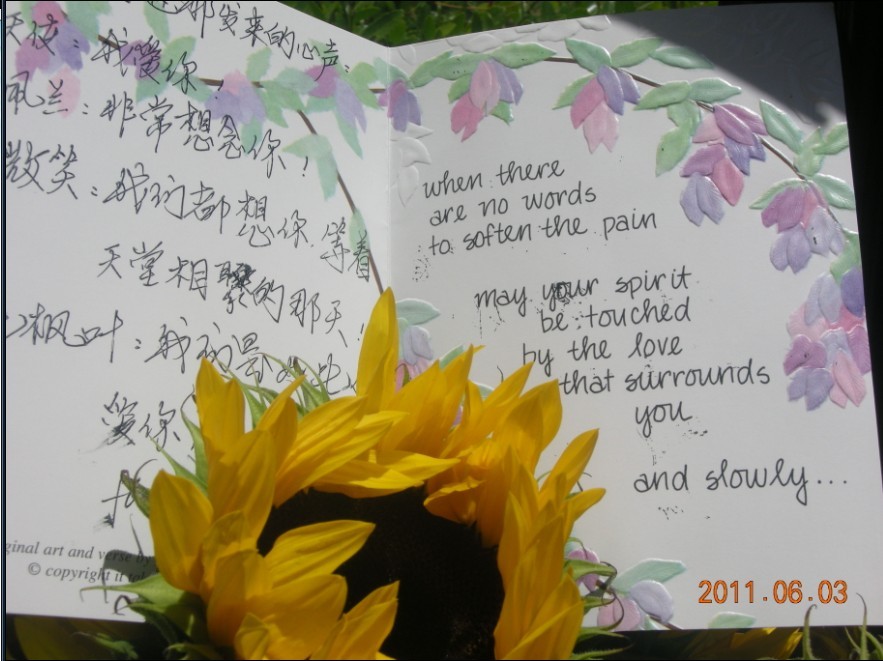 那发来的心声:
天使:我爱你!
礼兰:非常想念你!
微笑:我们都想你,等着
天堂相聚的那天!
枫叶:我们
爱你
ginal art and verse by
© copyright it
when there
are no words
to soften the pain
may your spirit
be touched
by the love
that surrounds
you
and slowly...
2011.06.03